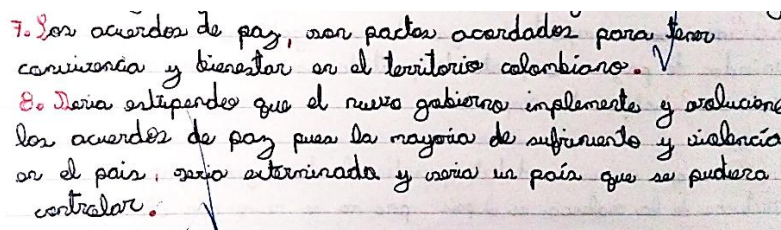 7. Los acuerdos de paz, son pactos acordados para tener
convivencia y bienestar en el territorio colombiano.
8. Seria estupendo que el nuevo gobierno implemente y evolucione
los acuerdos de paz pues la mayoria de sufrimiento y violencia
en el pais, seria exterminada y seria un país que se pudiera
controlar.